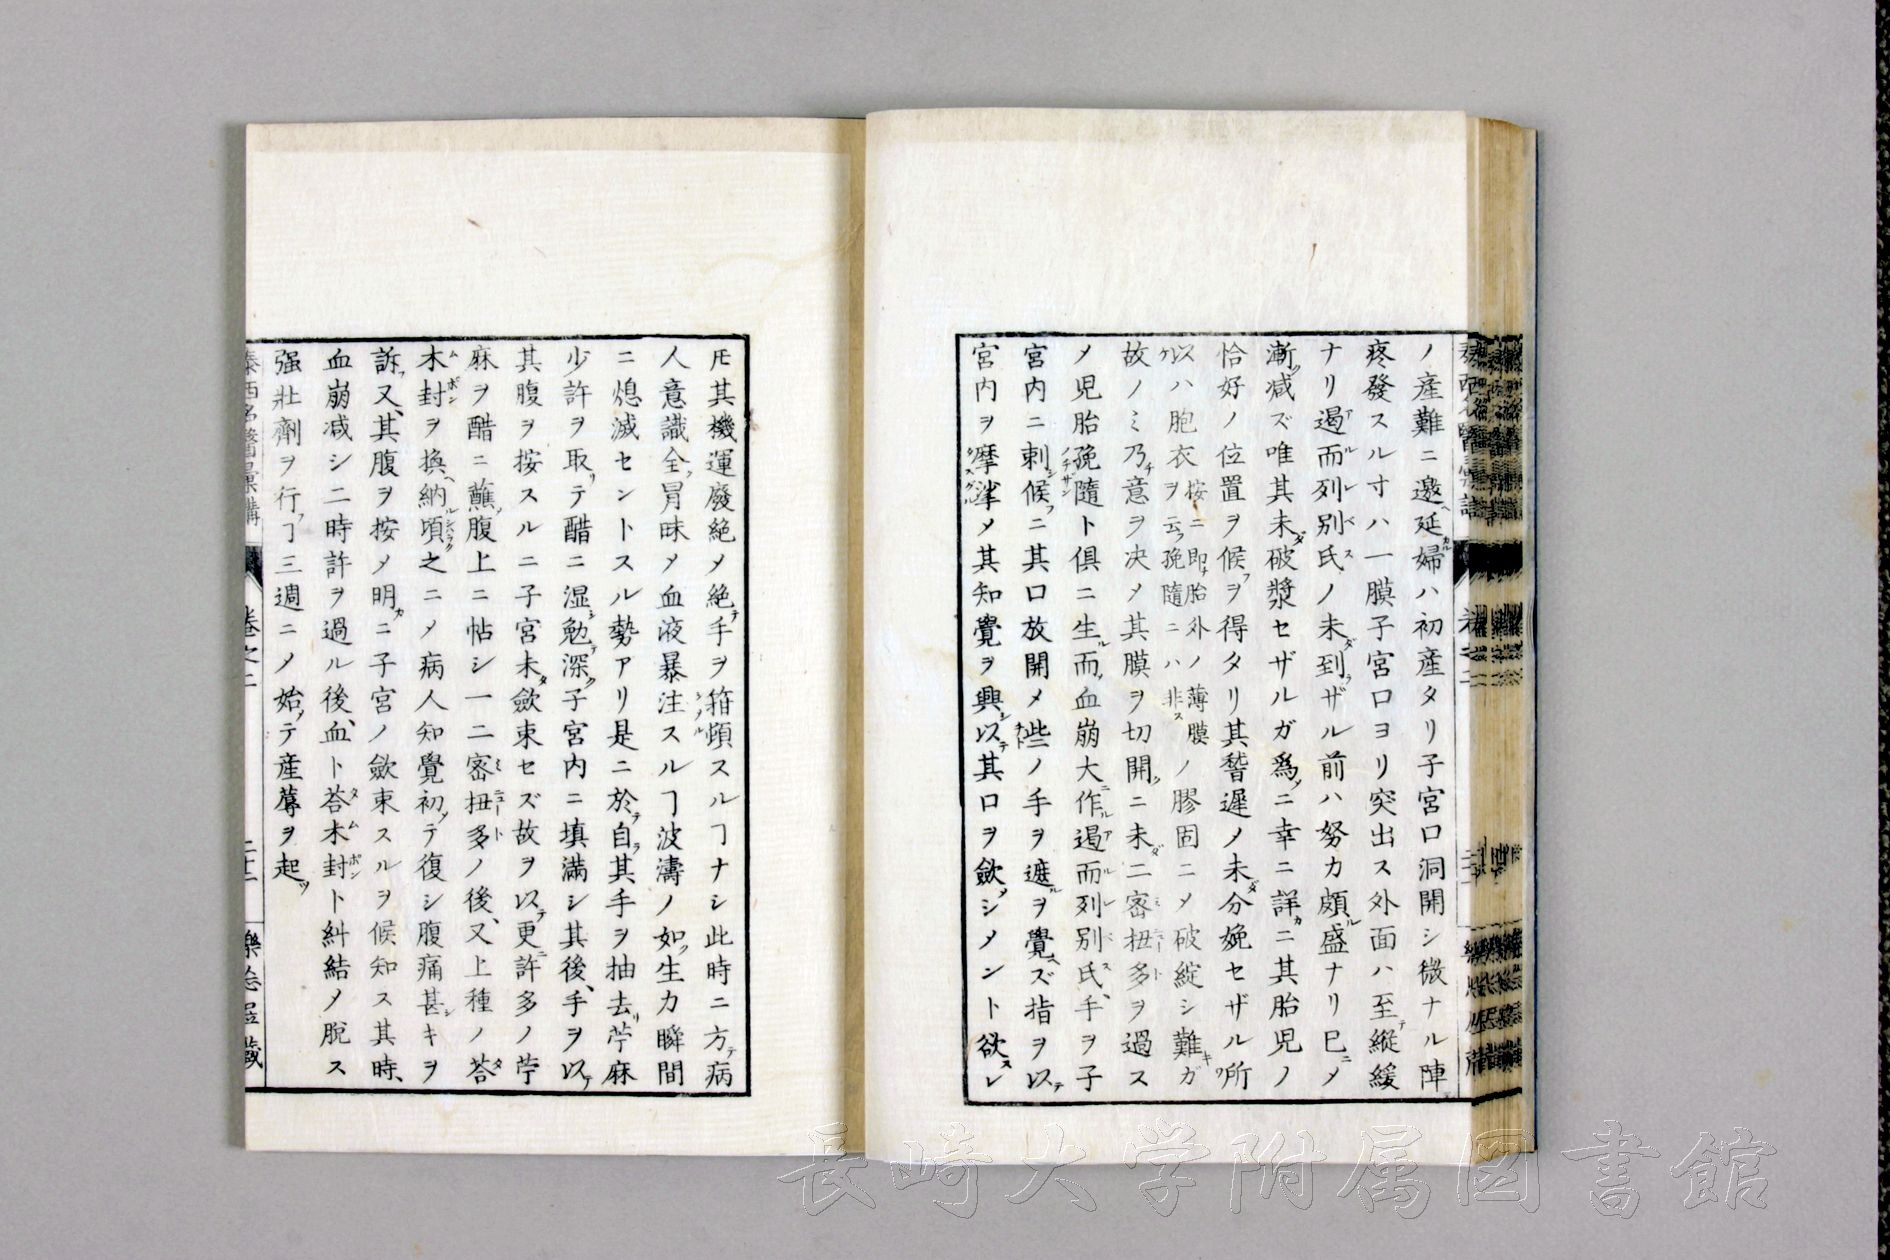 ノ産難ニ邀ヘ延婦ハ初産タリ子宮口洞開シ微ナル陣
疼發スル寸ハ一膜子宮口ヨリ突出ス外面ハ至テ縦緩
ナリ遏而列別氏ノ未ダ到ラザル前ハ努力頗ル盛ナリ已ニメ
漸ク减ズ唯其未ダ破漿セザルガ爲メニ幸ニ詳カニ其胎児ノ
恰好ノ位置ヲ候フヲ得タリ其稽遅メ未ダ分娩セザル所
以ハ胞衣ヲ按ニ即チ胎外ノ薄膜ヲ云フ娩隨ニハ非スノ膠固ニメ破綻シ難キガ
故ノミ乃チ意ヲ决メ其膜ヲ切開シニ未ダ二密扭多ヲ過ス
メ児胎娩隨ト俱ニ生ル而血崩大ニ作ル遏而列別氏、手ヲ子
宮内ニ刺シ候フニ其口放開メ些ノ手ヲ遮ルヲ覺ヘズ指ヲ以テ
宮内ヲ摩挲メ其知覺ヲ興シ以テ其口ヲ歛メシメント欲スレ
𪜈其機運廢絶メ絶テ手ヲ箝頓スルヿナシ此時ニ方テ病
人意識全ク冐昧メ血液暴注スルヿ波濤ノ如ク生力瞬間
ニ熄滅セントスル勢アリ是ニ於テ自ラ其手ヲ抽去リ苧麻
少許ヲ取リテ醋ニ湿シ勉テ深ク子宮内ニ填滿シ其後、手ヲ以テ
其腹ヲ按スルニ子宮未タ歛束セズ故ヲ以テ更ニ許多ノ苧
麻ヲ醋ニ蘸シ腹上ニ帖シ一二密扭多ノ後、又上種ノ荅
木封ヲ換ヘ納ル頃之ニメ病人知覺初メテ復シ腹痛甚シキヲ
訴フ又、其腹ヲ按メ明カニ子宮ノ歛束スルヲ候知ス其時、
血崩减シ二時許ヲ過ル後、血、ト荅木封ト糾結メ脱ス
强壯劑ヲ行フヿ三週ニノ始メテ産蓐ヲ起ツ
泰西名醫彙講
卷之二
長崎大学附属図書館